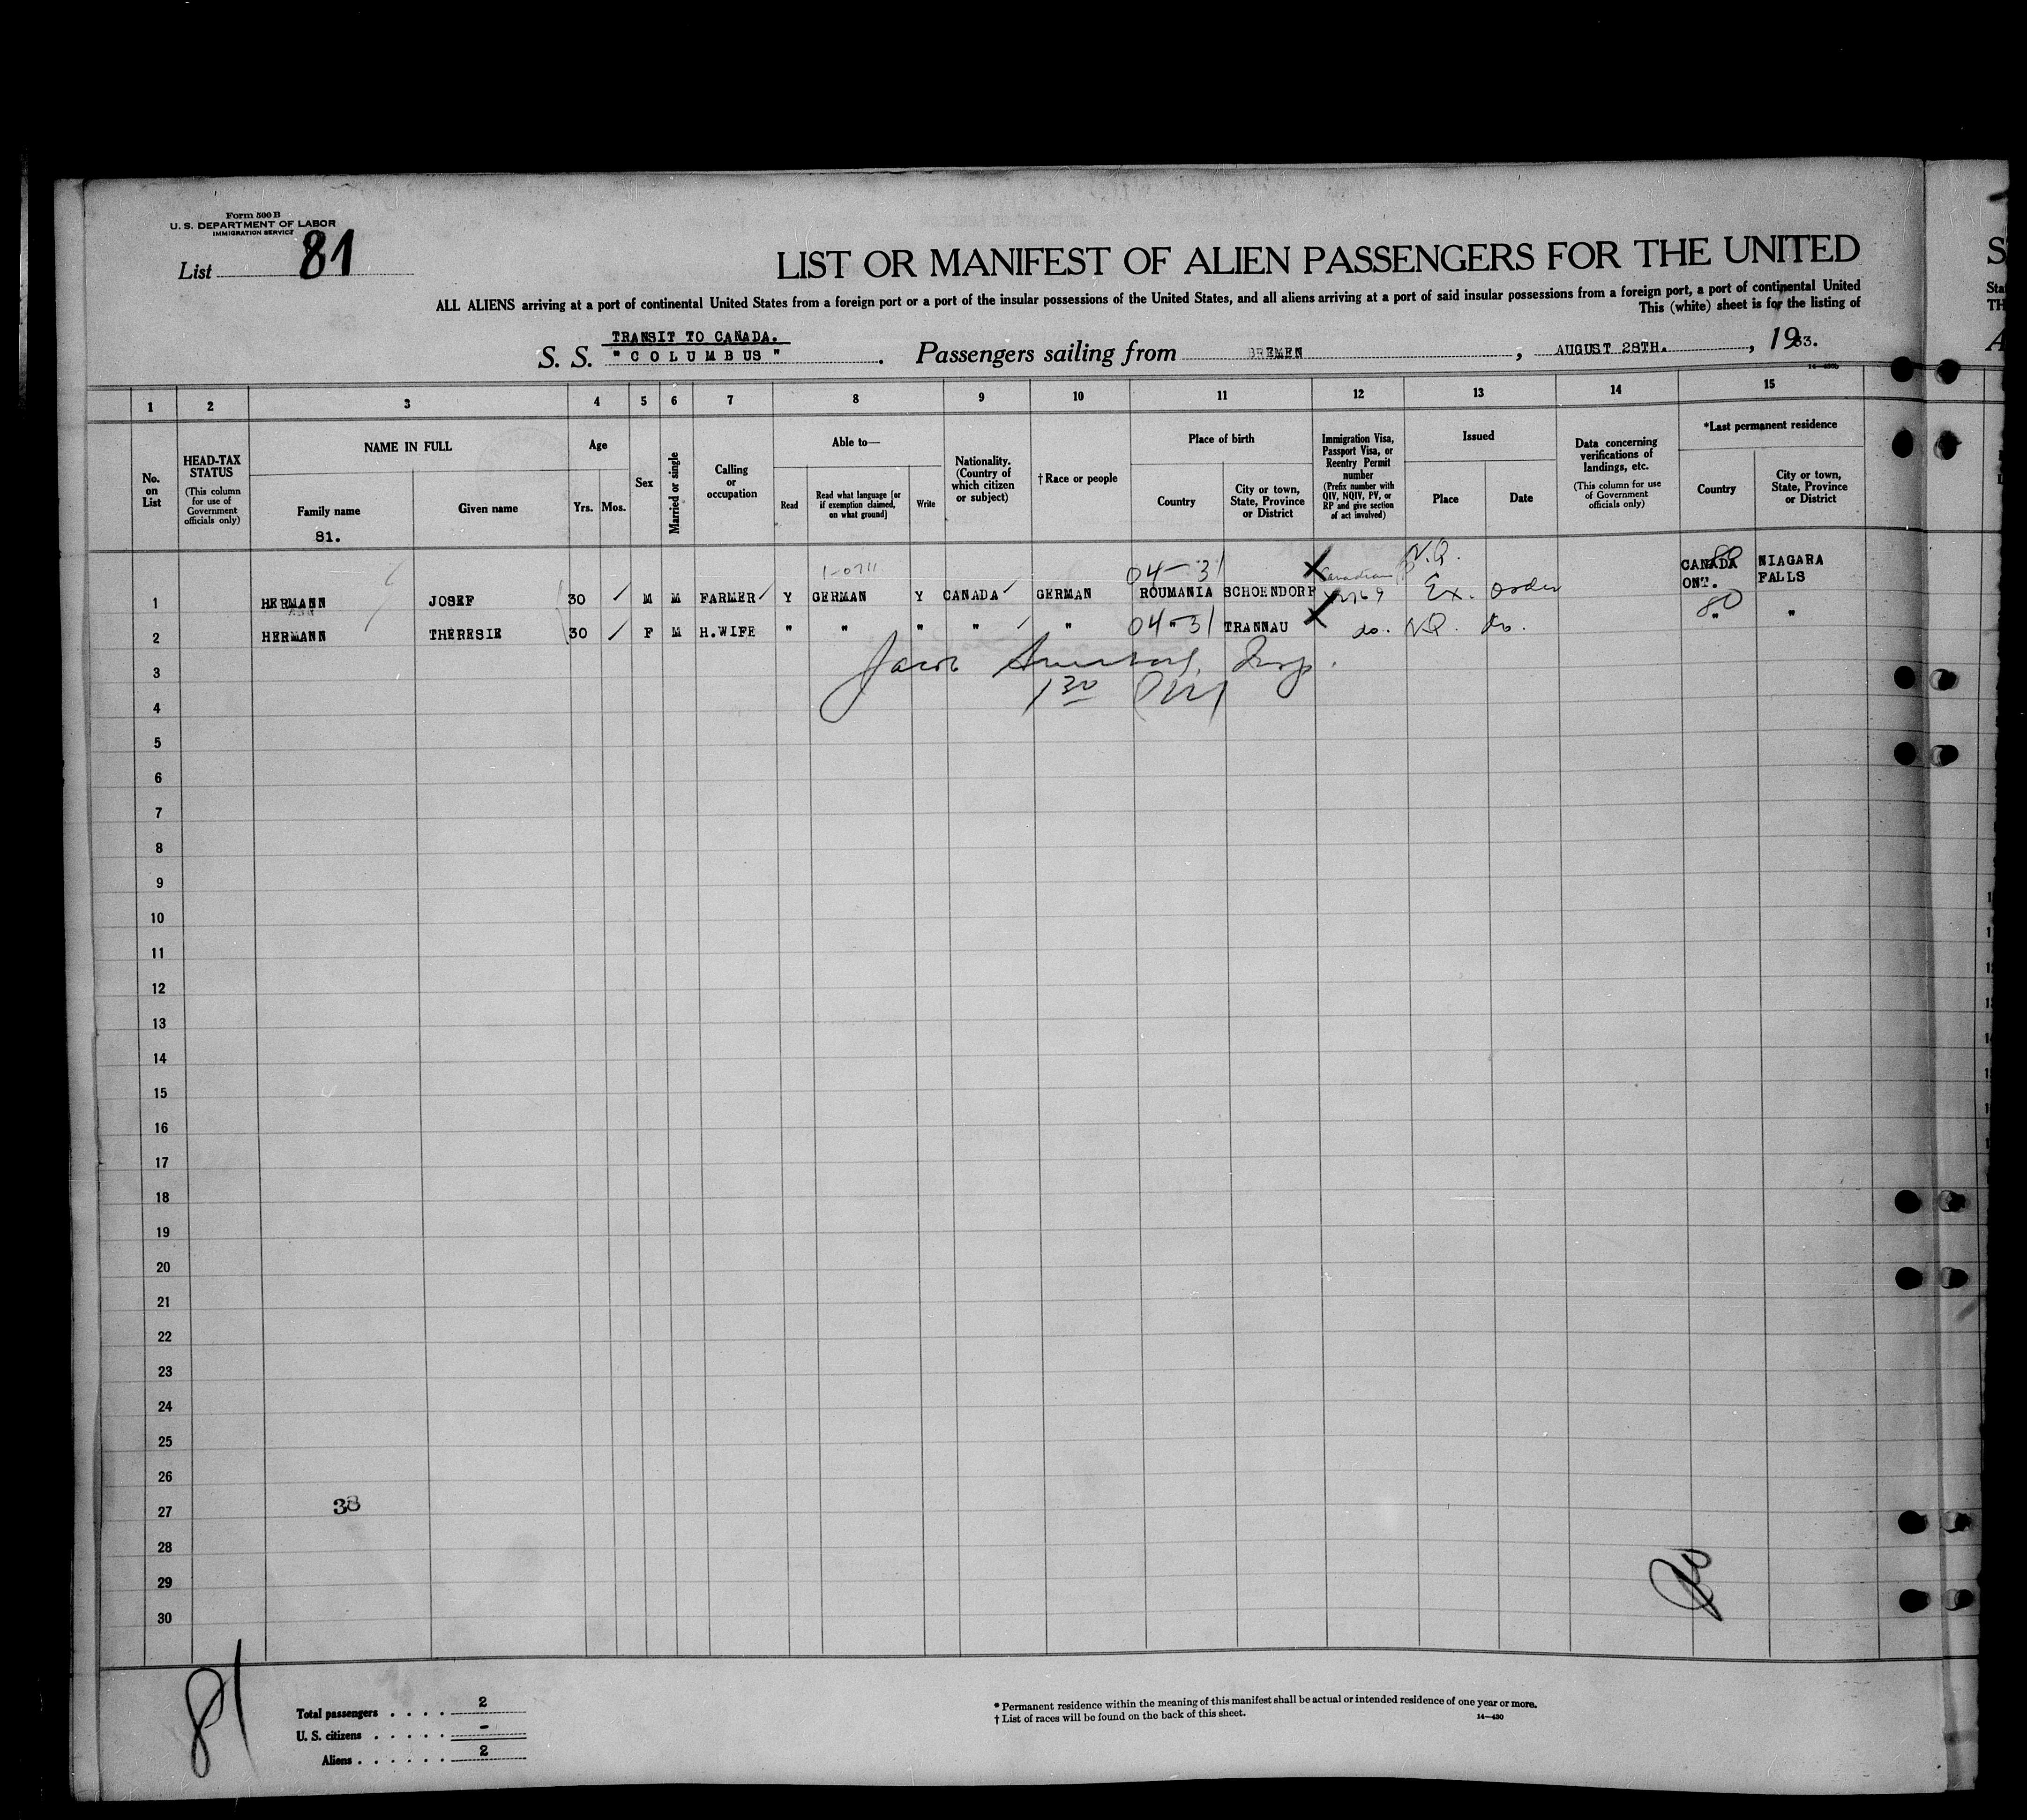 Form 500 B
U. S. DEPARTMENT OF LABOR
IMMIGRATION SERVICE
List 81
LIST OR MANIFEST OF ALIEN PASSENGERS FOR THE UNITED
ALL ALIENS arriving at a port of continental United States from a foreign port or a port of the insular possessions of the United States, and all aliens arriving at a port of said insular possessions from a foreign port, a port of continental United
This (white) sheet is for the listing of
TRANSIT TO CANADA.
S. S. "COLUMBUS". Passengers sailing from BREMEN, AUGUST 28TH., 1933.
14-430b
1 2 3 4 5 6 7 8 9 10 11 12 13 14 15
No. on List
HEAD-TAX STATUS
(This column for use of Government officials only)
NAME IN FULL
Family name
81.
Given name
Age
Yrs. Mos.
Sex
Married or single
Calling or occupation
Able to—
Read
Read what language [or if exemption claimed, on what ground]
Write
Nationality. (Country of which citizen or subject)
†Race or people
Place of birth
Country
City or town, State, Province or District
Immigration Visa, Passport Visa, or Reentry Permit number
(Prefix number with QIV, NQIV, PV, or RP and give section of act involved)
Issued
Place
Date
Data concerning verifications of landings, etc.
(This column for use of Government officials only)
*Last permanent residence
Country
City or town, State, Province or District
04-31 Canadian N.Q. 80
1 HERMANN JOSEF 30 M M FARMER Y GERMAN Y CANADA GERMAN ROUMANIA SCHOENDORF Ex. order CANADA ONT. NIAGARA FALLS
2 HERMANN THERESIE 30 F M H.WIFE " " " " " 04-31 TRANNAU do. N.Q. do. 80 " "
3 Jacob Insp.
4 1 30
5
6
7
8
9
10
11
12
13
14
15
16
17
18
19
20
21
22
23
24
25
26
27 38
28
29
30
81
Total passengers . . . . 2
U. S. citizens . . . . . -
Aliens . . . . . . 2
* Permanent residence within the meaning of this manifest shall be actual or intended residence of one year or more.
† List of races will be found on the back of this sheet.
14-430